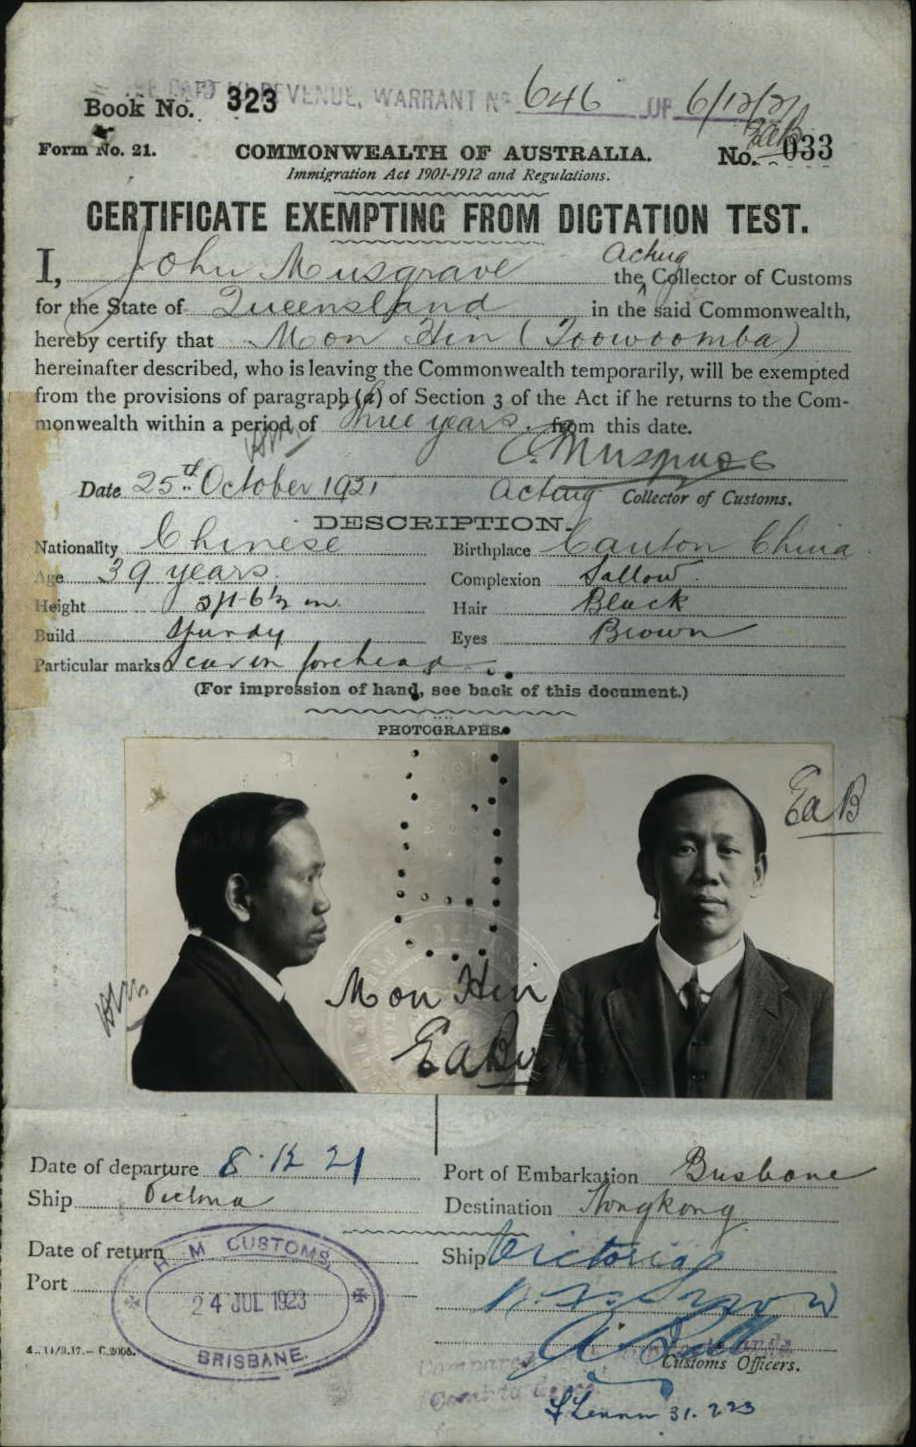 REVENUE, WARRANT No 646 OF 6/12/21
Book No. 323
EaB
Form No. 21.
COMMONWEALTH OF AUSTRALIA.
No. 033
Immigration Act 1901-1912 and Regulations.
CERTIFICATE EXEMPTING FROM DICTATION TEST.
Acting
I, John Musgrave the Collector of Customs
for the State of Queensland in the said Commonwealth,
hereby certify that Mon Hin (Toowoomba)
hereinafter described, who is leaving the Commonwealth temporarily, will be exempted
from the provisions of paragraph (a) of Section 3 of the Act if he returns to the Com-
monwealth within a period of three years from this date.
Musgrave
Date 25th October 1921 Acting Collector of Customs.
DESCRIPTION.
Nationality Chinese Birthplace Canton China
Age 39 years Complexion Sallow
Height 5ft 6½ in Hair Black
Build Sturdy Eyes Brown
Particular marks Scar on forehead
(For impression of hand, see back of this document.)
PHOTOGRAPHS.
EaB
Mon Hin
EaB
Date of departure 8.12.21 Port of Embarkation Brisbane
Ship Destination Hongkong
Date of return Ship Victoria
Port
H. M CUSTOMS
24 JUL 1923
BRISBANE.
Customs Officers.
Compared
31.7.23